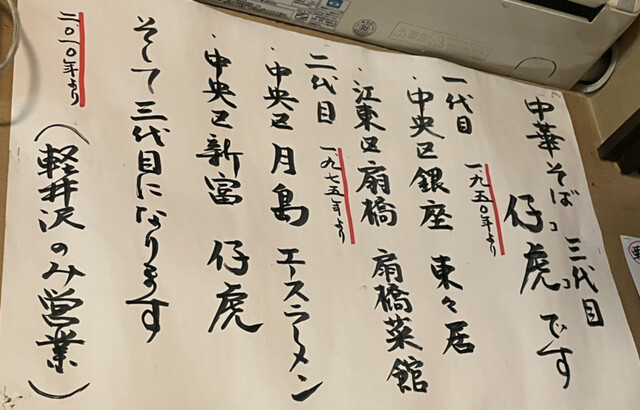 中華そば 三代目
仔虎 です
ココ
一代目 一九五〇年より
・中央区銀座 東々居
・江東区扇橋 扇橋菜館
二代目 一九七五年より
・中央区月島 エースラーメン
・中央区新富 仔虎
そして三代目になります
二〇一〇年より
（軽井沢のみ営業）